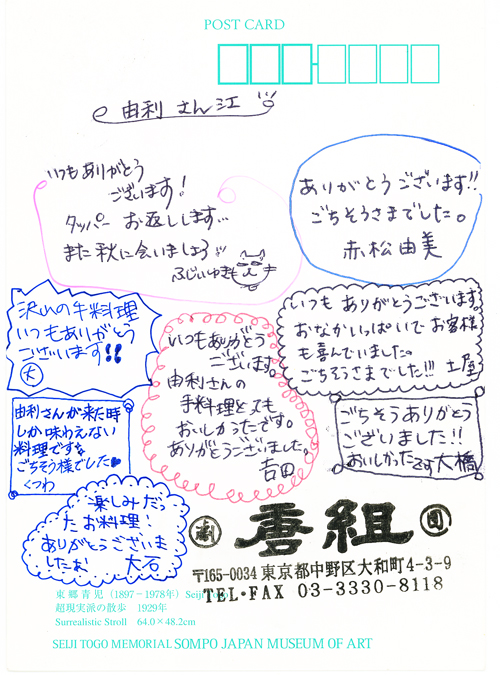 POST CARD
由利さん江
いつもありがとう
ございます!
タッパー お返しします…
また秋に会いましょう
ふじいゆきも
ありがとうございます!!
ごちそうさまでした。
赤松由美
沢山の手料理
いつもありがとう
ございます!!
大
いつもありがとう
ございます。
由利さんの
手料理とても
おいしかったです。
ありがとうございました。
吉田
いつもありがとうございます。
おなかいっぱいで お客様
も喜んでいました。
ごちそうさまでした!!! 土屋
由利さんが来た時
しか味わえない
料理です。
ごちそう様でした♥
くつわ
ごちそうありがとう
ございました!!
おいしかったです 大橋
楽しみだっ
たお料理!
ありがとうございま
した 大石
劇 唐組 団
〒165-0034 東京都中野区大和町4-3-9
TEL・FAX 03-3330-8118
東郷青児 (1897-1978年) Seiji
超現実派の散歩 1929年
Surrealistic Stroll 64.0×48.2cm
SEIJI TOGO MEMORIAL SOMPO JAPAN MUSEUM OF ART